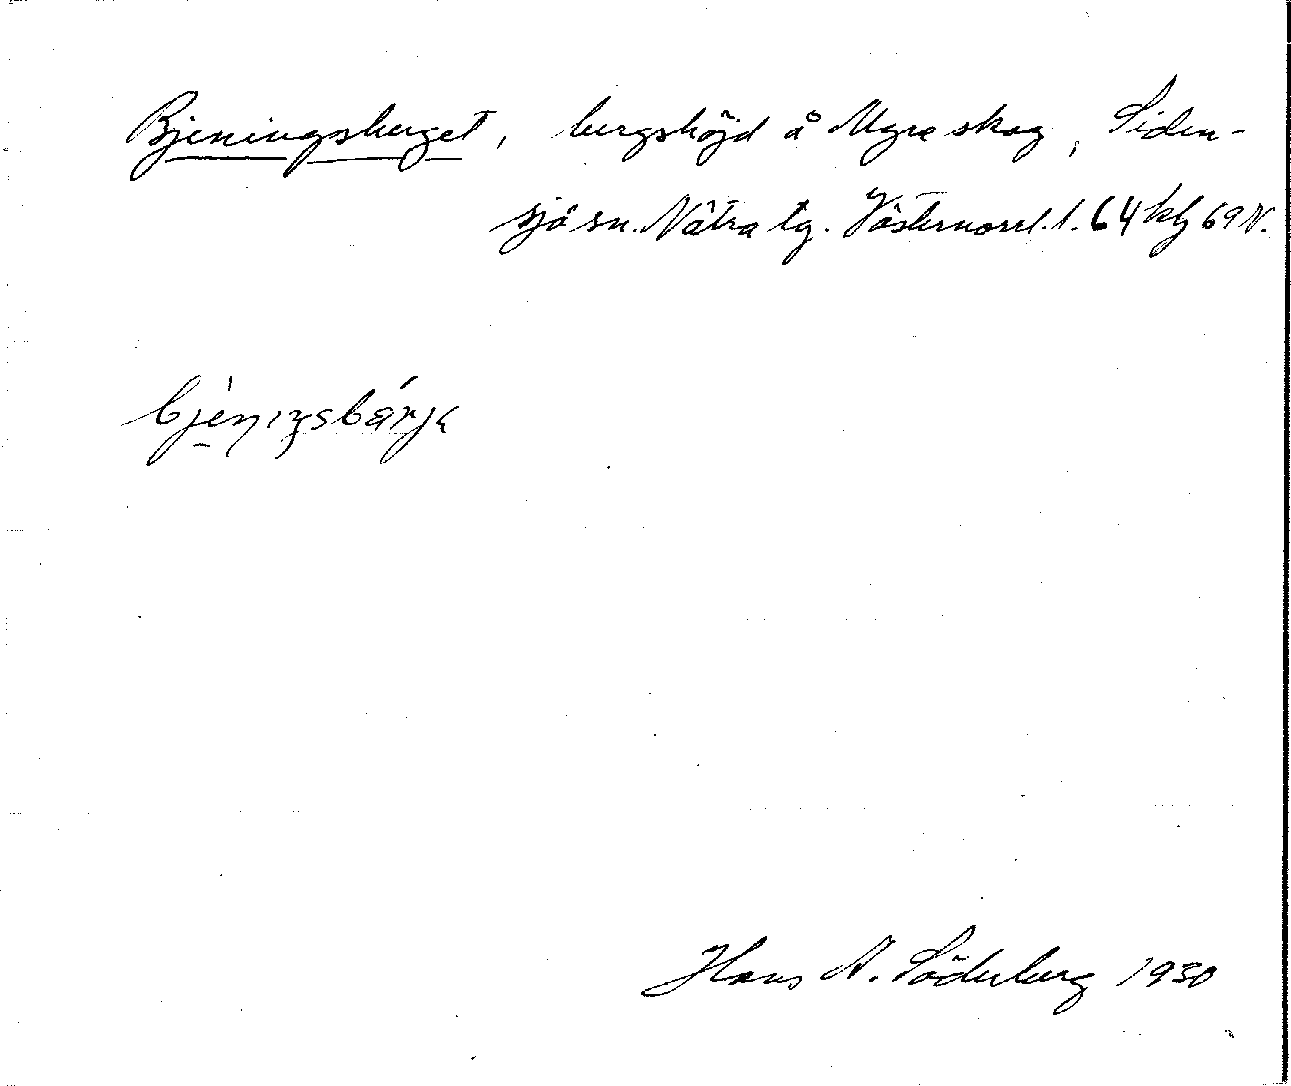 Bjeningsberget, bergshöjd å Myre skog, Siden-
sjö sn. Nätra tg. Västernorrl. l. 64 kbf 69 N.
bjèŋıŋsbárjɛ
Hans A. Söderberg 1930